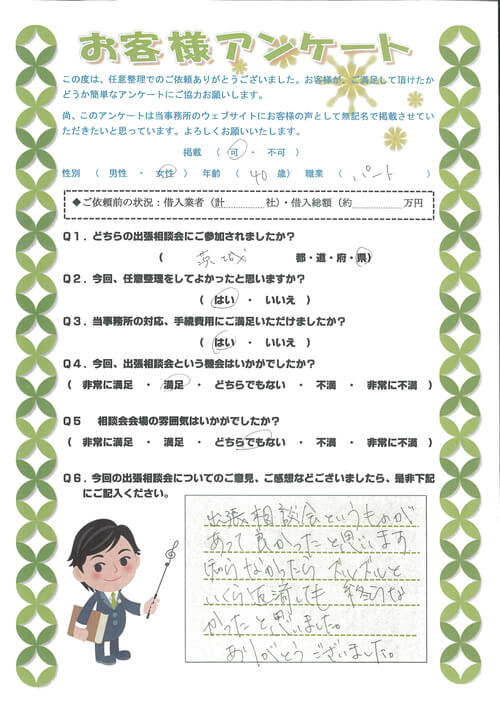 お客様アンケート
この度は、任意整理でのご依頼ありがとうございました。お客様が、ご満足して頂けたか
どうか簡単なアンケートにご協力お願いします。
尚、このアンケートは当事務所のウェブサイトにお客様の声として無記名で掲載させてい
ただきたいと思っています。よろしくお願いいたします。
掲載 （ 可 ・ 不可 ）
性別 （ 男性 ・ 女性 ） 年齢 （ 40 歳） 職業 （ パート ）
◆ご依頼前の状況：借入業者（計 社）・借入総額（約 万円
Q1．どちらの出張相談会にご参加されましたか？
（ 茨城 都・道・府・県）
Q2．今回、任意整理をしてよかったと思いますか？
（ はい ・ いいえ ）
Q3．当事務所の対応、手続費用にご満足いただけましたか？
（ はい ・ いいえ ）
Q4．今回、出張相談会という機会はいかがでしたか？
（ 非常に満足 ・ 満足 ・ どちらでもない ・ 不満 ・ 非常に不満 ）
Q5 相談会会場の雰囲気はいかがでしたか？
（ 非常に満足 ・ 満足 ・ どちらでもない ・ 不満 ・ 非常に不満 ）
Q6．今回の出張相談会についてのご意見、ご感想などございましたら、是非下記
にご記入ください。
出張相談会というものが
あって良かったと思います
知らなかったら ズルズルと
いくら返済しても 終らな
かったと思いました。
ありがとうございました。